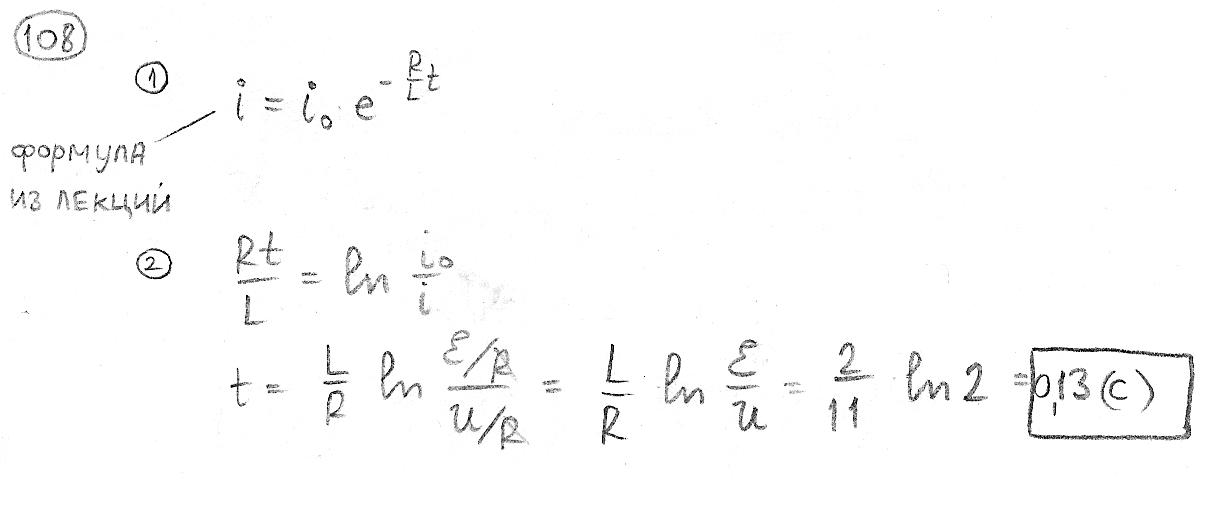 108
① i = i₀ e^(-R/L t)
ФОРМУЛА
ИЗ ЛЕКЦИЙ
② Rt/L = ln i₀/i
t = L/R ln (ℰ/R)/(u/R) = L/R ln ℰ/u = 2/11 ln 2 = 0,13 (с)